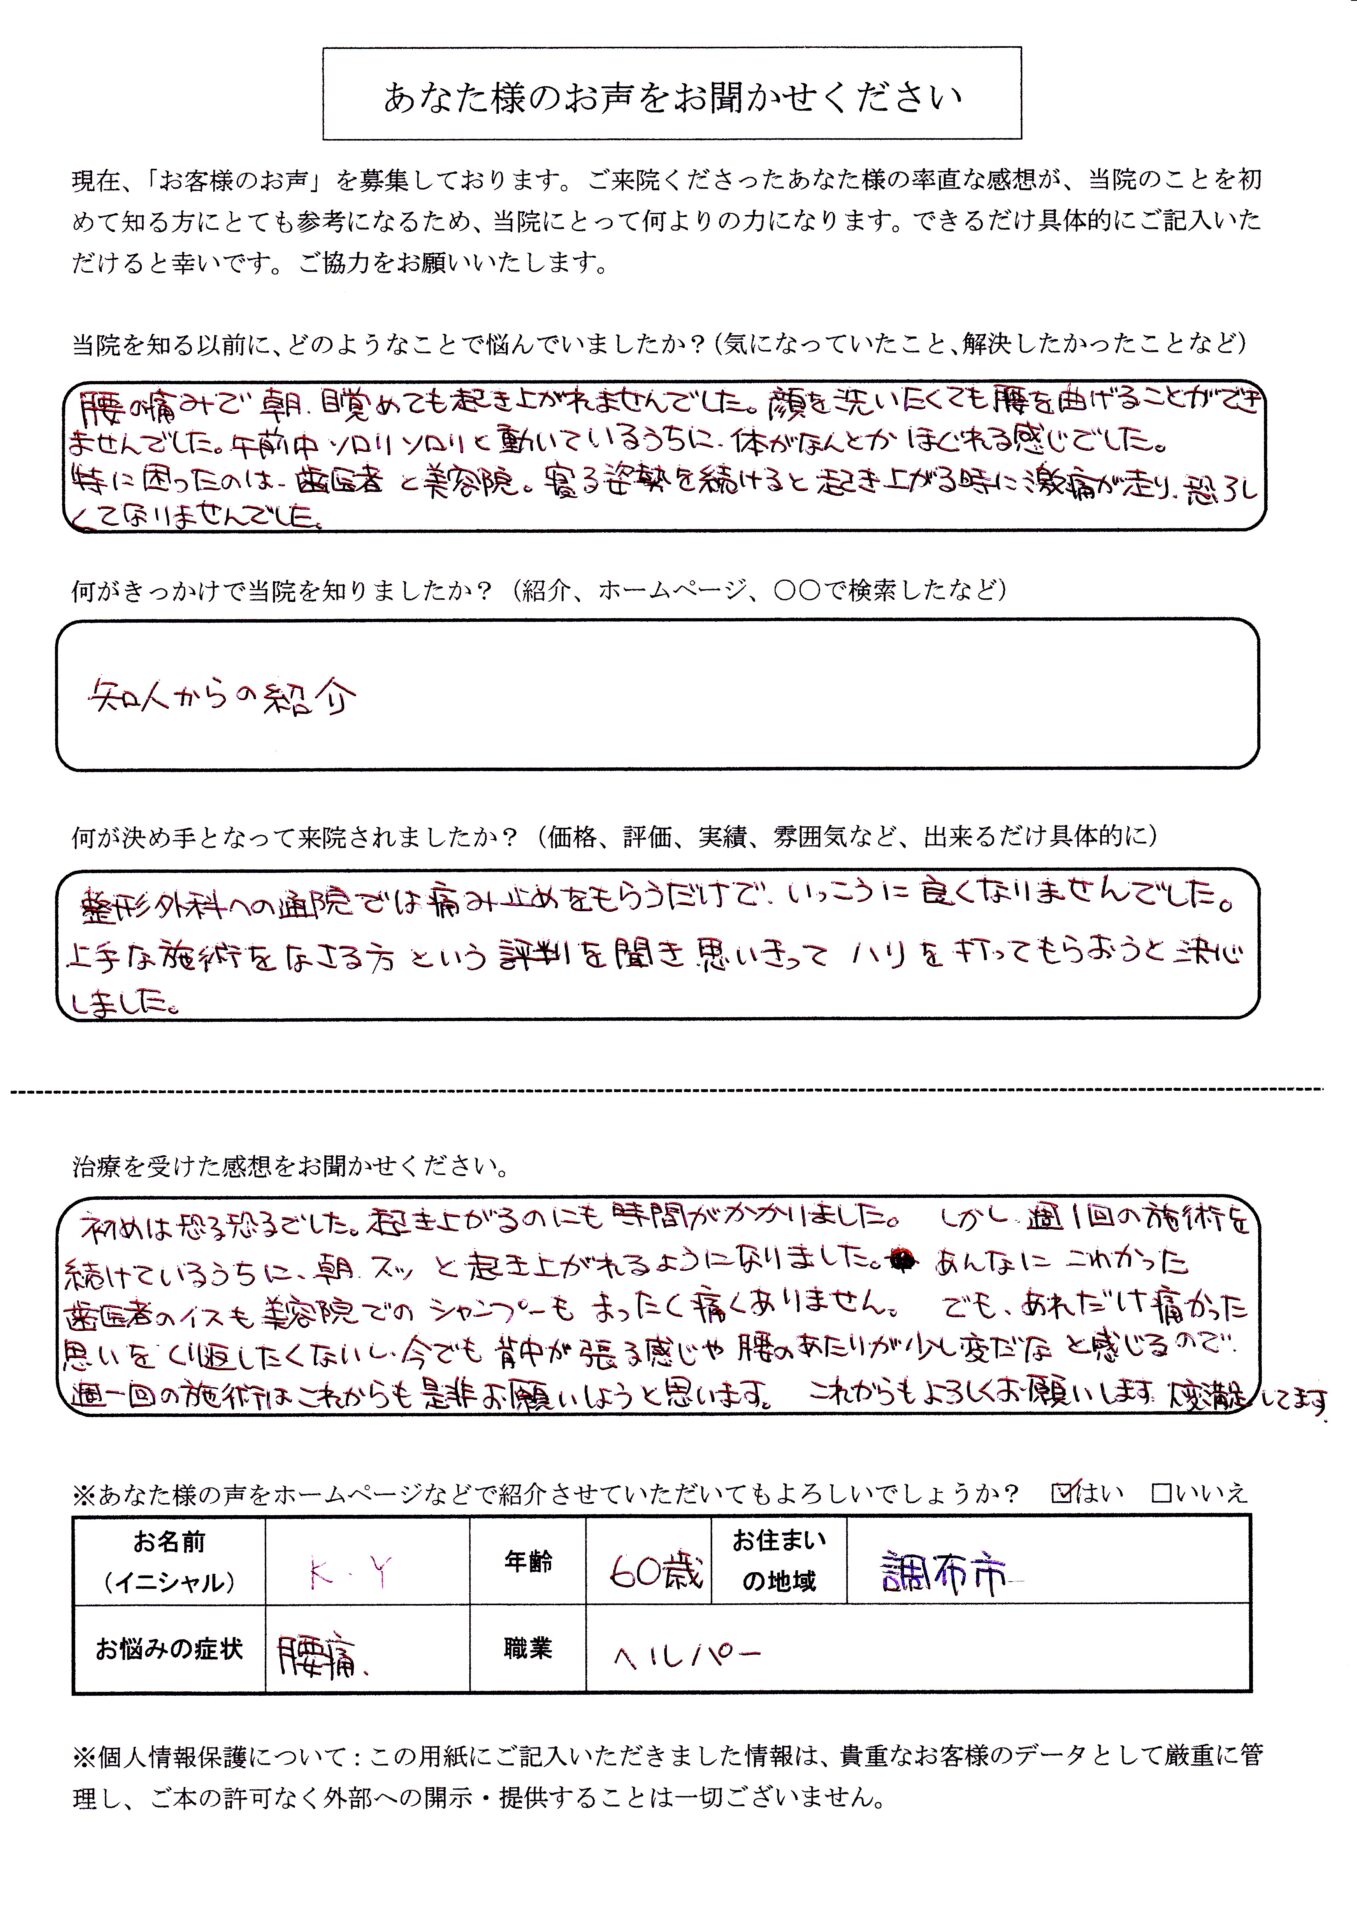 あなた様のお声をお聞かせください
現在、「お客様のお声」を募集しております。ご来院くださったあなた様の率直な感想が、当院のことを初
めて知る方にとても参考になるため、当院にとって何よりの力になります。できるだけ具体的にご記入いた
だけると幸いです。ご協力をお願いいたします。
当院を知る以前に、どのようなことで悩んでいましたか？（気になっていたこと、解決したかったことなど）
腰の痛みで朝、目覚めても起き上がれませんでした。顔を洗いたくても腰を曲げることができ
ませんでした。午前中ソロリソロリと動いているうちに、体がなんとかほぐれる感じでした。
特に困ったのは、歯医者と美容院。寝る姿勢を続けると起き上がる時に激痛が走り、恐ろし
くてなりませんでした。
何がきっかけで当院を知りましたか？（紹介、ホームページ、〇〇で検索したなど）
知人からの紹介
何が決め手となって来院されましたか？（価格、評価、実績、雰囲気など、出来るだけ具体的に）
整形外科への通院では痛み止めをもらうだけで、いっこうに良くなりませんでした。
上手な施術をなさる方という評判を聞き思いきってハリを打ってもらおうと決心
しました。
治療を受けた感想をお聞かせください。
初めは恐る恐るでした。起き上がるのにも時間がかかりました。しかし、週1回の施術を
続けているうちに、朝、スッと起き上がれるようになりました。あんなにこわかった
歯医者のイスも美容院でのシャンプーもまったく痛くありません。でも、あれだけ痛かった
思いをくり返したくないし、今でも背中が張る感じや腰のあたりが少し変だなと感じるので、
週一回の施術はこれからも是非お願いしようと思います。これからもよろしくお願いします。大変満足してます。
※あなた様の声をホームページなどで紹介させていただいてもよろしいでしょうか？ ☑はい □いいえ
お名前（イニシャル） K.Y 年齢 60歳 お住まいの地域 調布市
お悩みの症状 腰痛、 職業 ヘルパー
※個人情報保護について：この用紙にご記入いただきました情報は、貴重なお客様のデータとして厳重に管
理し、ご本の許可なく外部への開示・提供することは一切ございません。